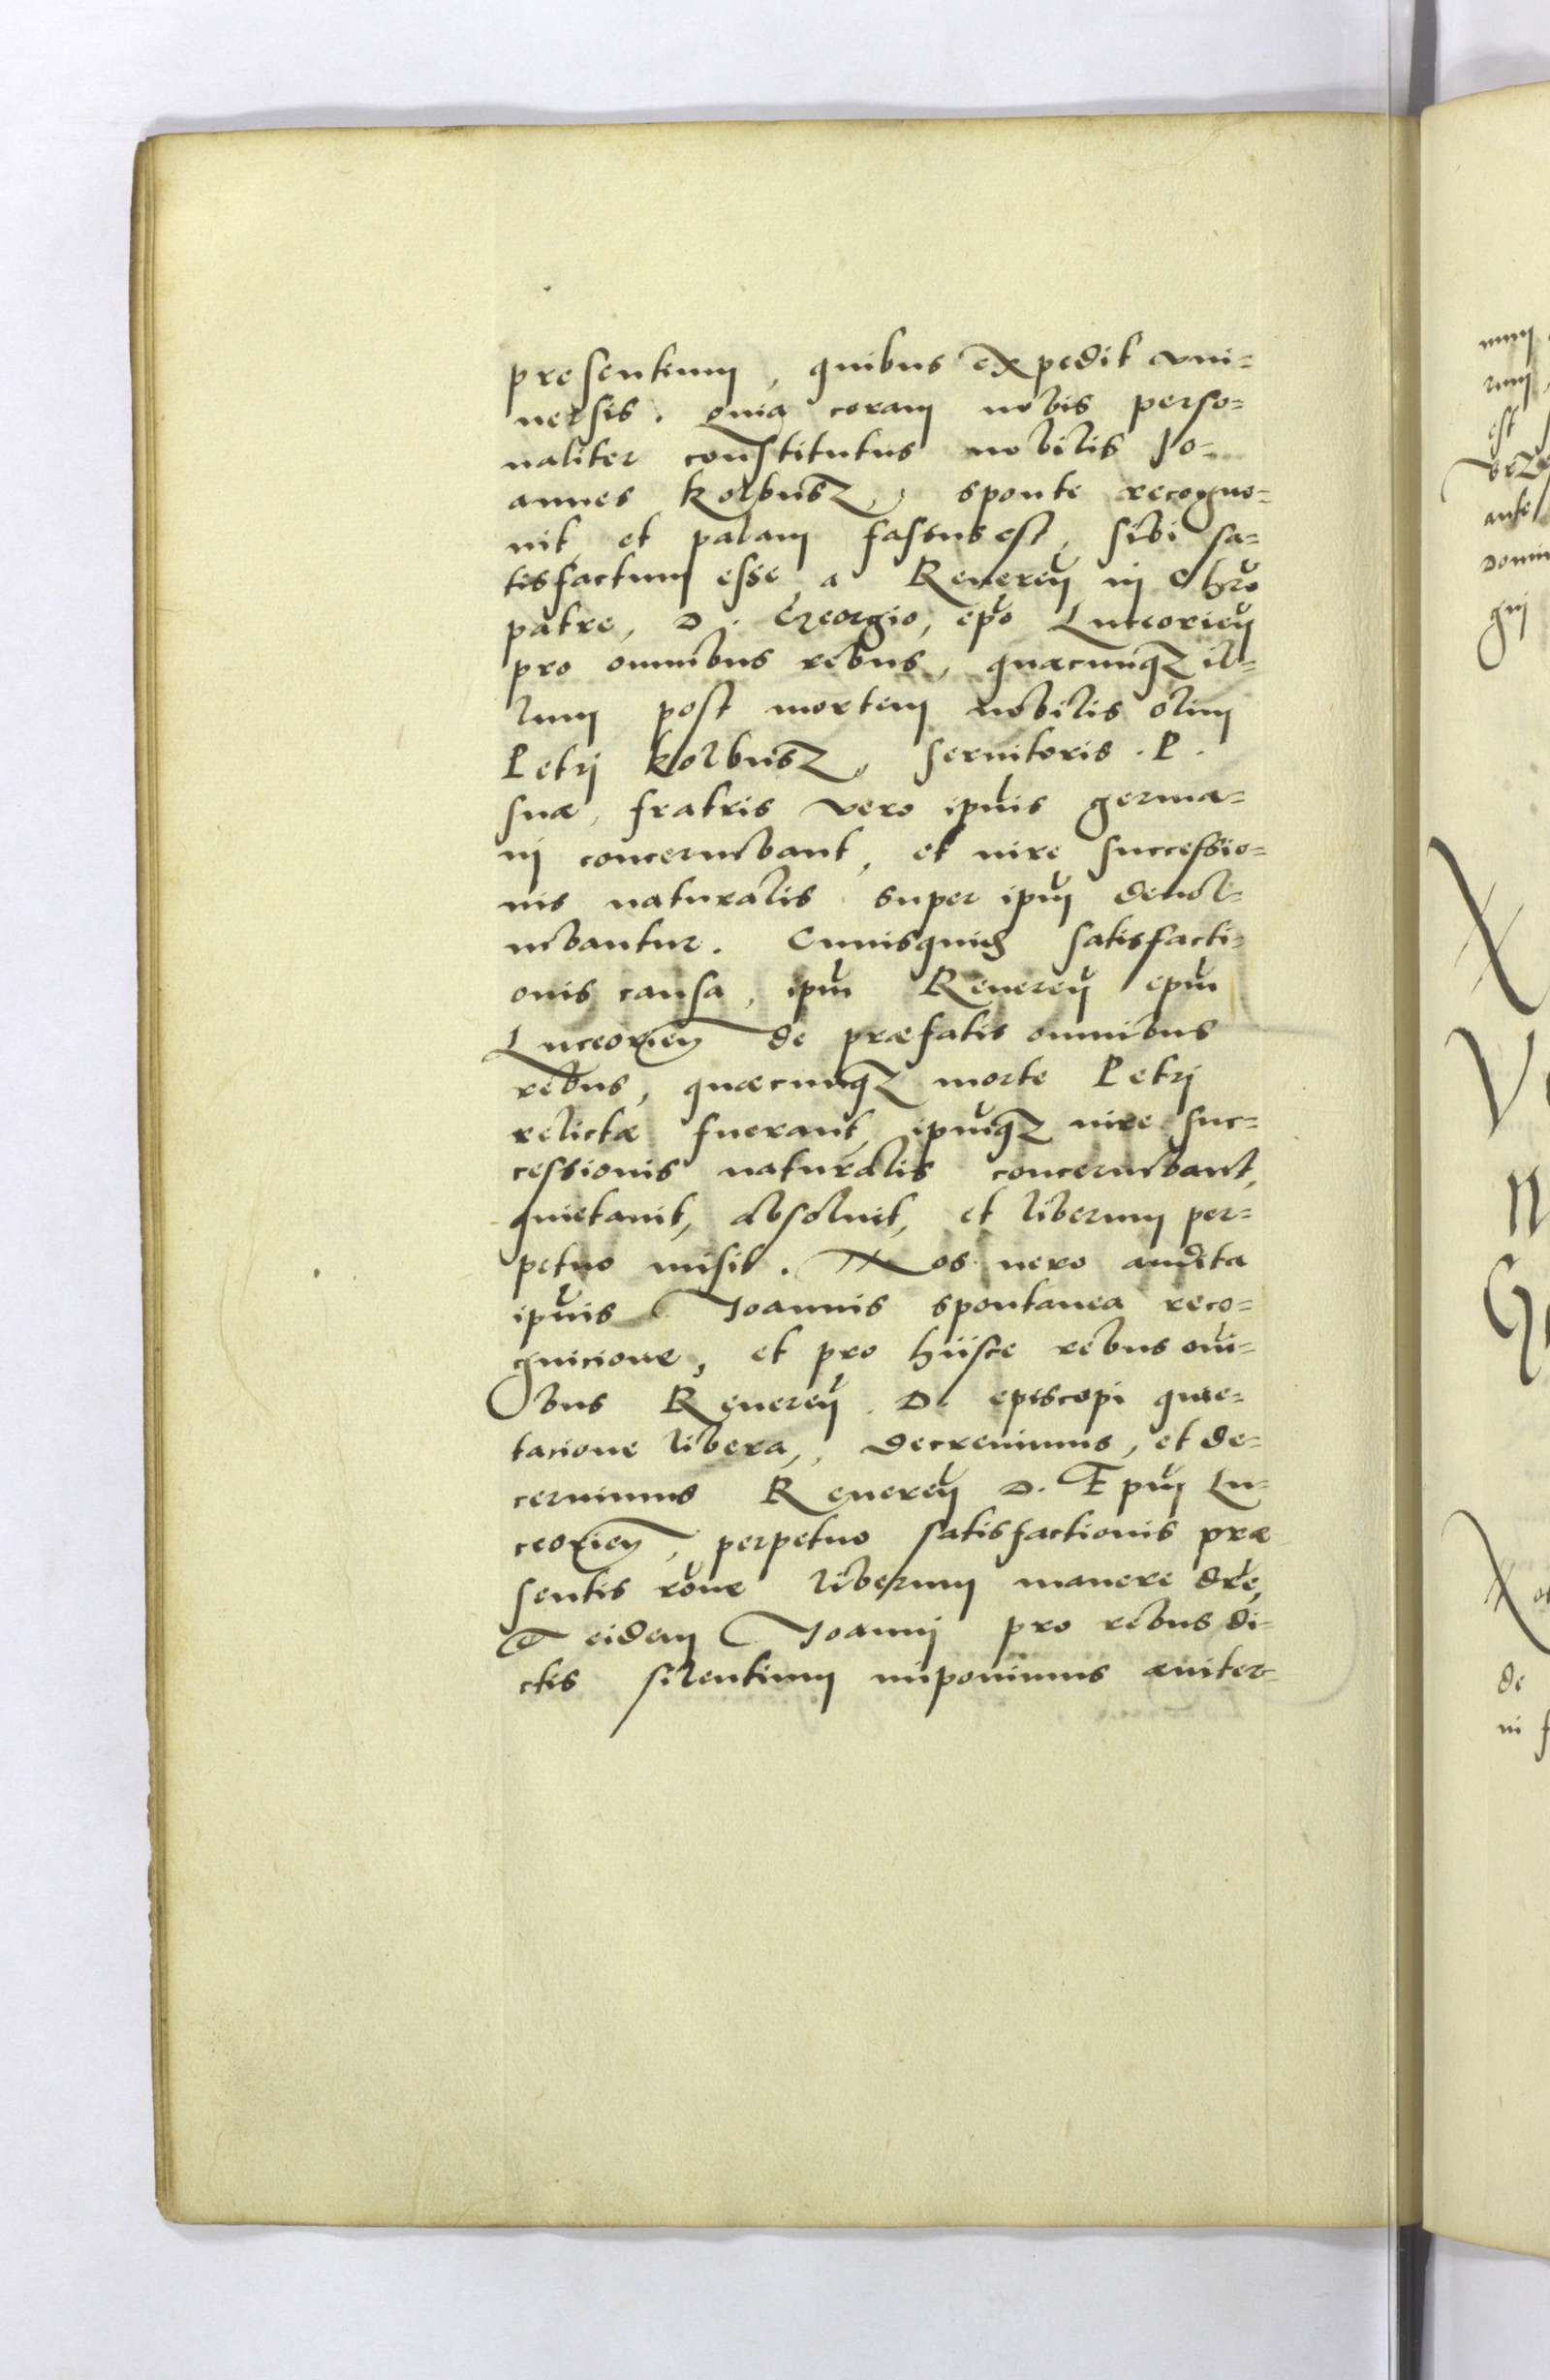 presentium, quibus expedit vni=
uersis. Quia coram nobis perso=
naliter constitutus nobilis Jo=
annes Kolbusz, sponte recogno=
uit et palam fassus est, sibi sa=
tisfactum esse a Reueren in Chro
patre, D. Georgio, epo Luceorien
pro omnibus rebus, quacunq il=
lum post mortem nobilis olim
Petri Kolbusz, seruitoris .P.
suæ, fratris vero ipius germa=
ni concernebant, et iure successio=
nis naturalis super ipm deuol=
uebantur. Cuiusquid satisfacti=
onis causa, ipm Reueren epm
Luceorien de præfatis omnibus
rebus, quæcunq morte Petri
relictæ fuerant, ipmq iure suc=
cessionis naturalis concernebant,
quietauit, absoluit, et liberum per=
petuo misit. Nos vero audita
ipius Joannis spontanea reco=
gnicione, et pro hiisce rebus omi=
bus Reueren D. episcopi quie=
tacione libera, decreuimus, et de=
cernimus Reueren D. Epm Lu=
ceorien, perpetuo satisfactionis præ
sentis rone liberum manere dre,
et eidem Joanni pro rebus di=
ctis silentium imponimus æuiter=
num
rum,
est
ante
domin
gni
X
V
N
G
X
de
in f